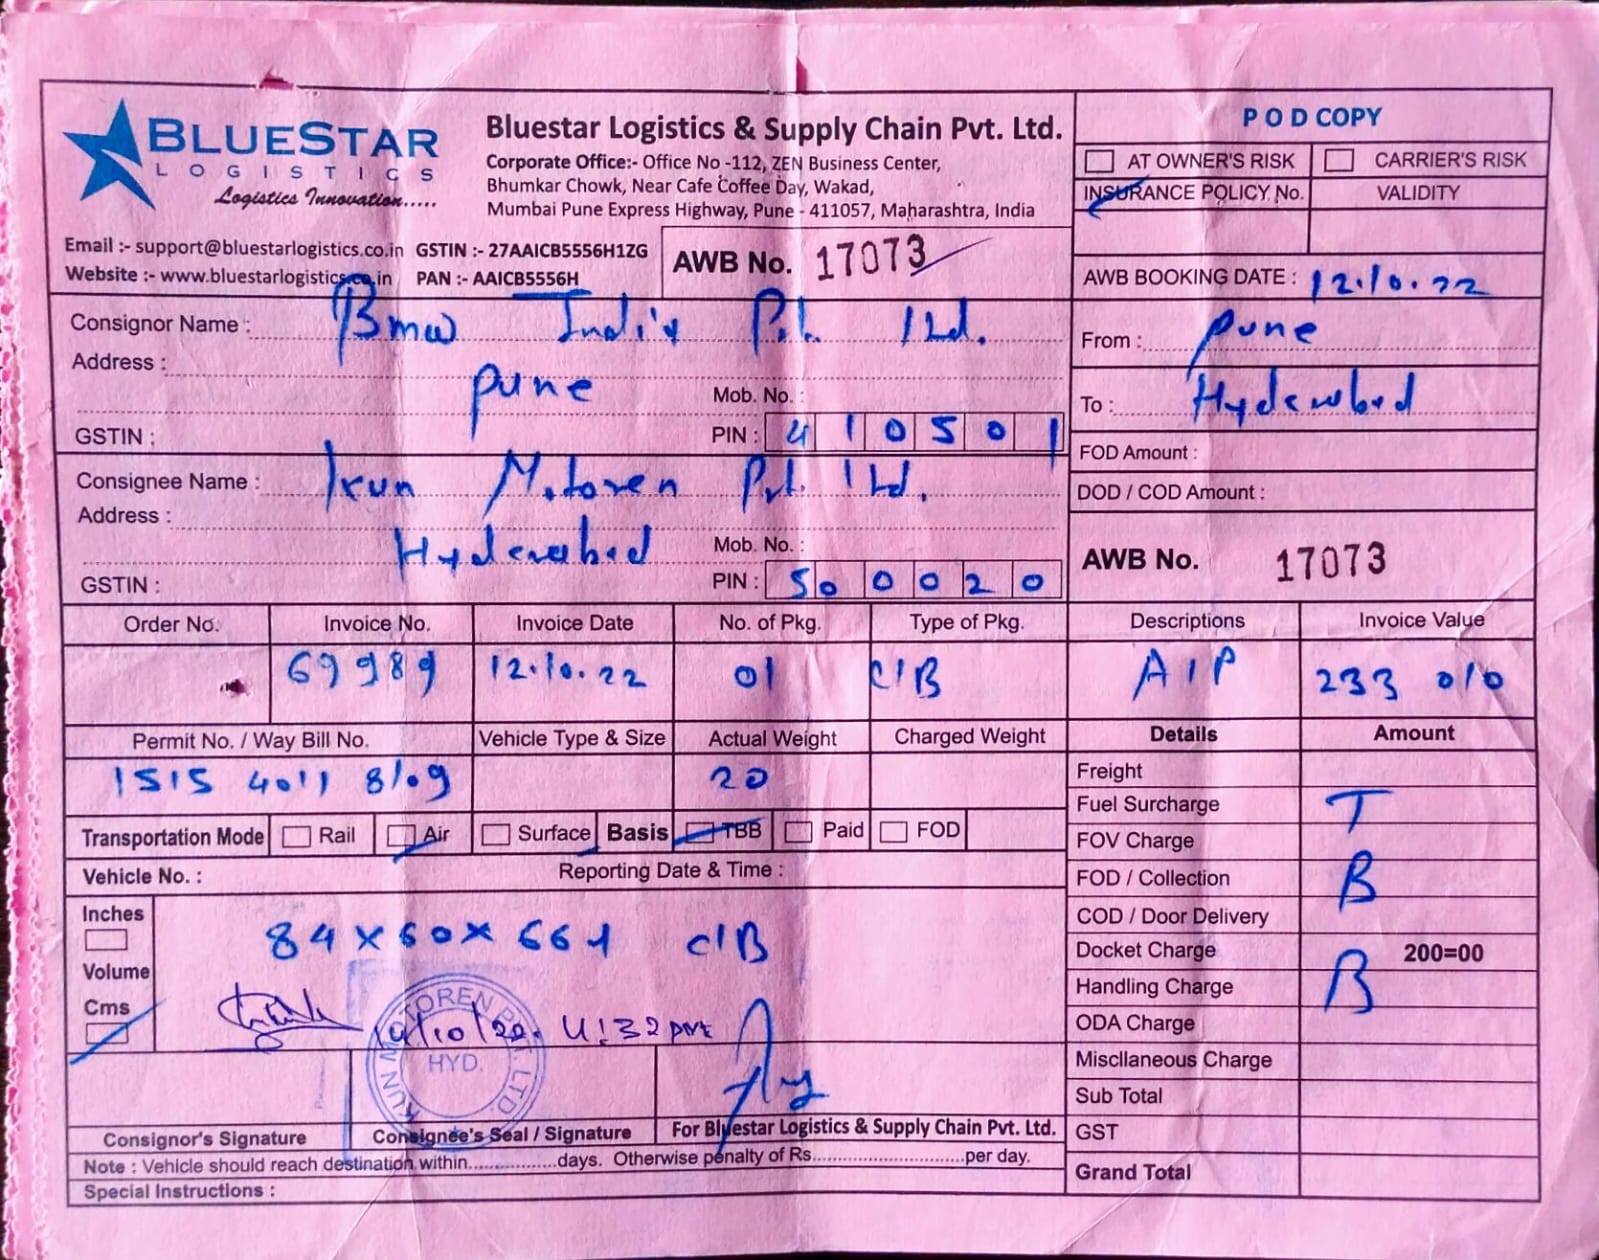 BLUESTAR
LOGISTICS
Logistics Innovation.....
Bluestar Logistics & Supply Chain Pvt. Ltd.
Corporate Office:- Office No -112, ZEN Business Center,
Bhumkar Chowk, Near Cafe Coffee Day, Wakad,
Mumbai Pune Express Highway, Pune - 411057, Maharashtra, India
Email :- support@bluestarlogistics.co.in GSTIN :- 27AAICB5556H1ZG
Website :- www.bluestarlogistics.co.in PAN :- AAICB5556H
AWB No. 17073
POD COPY
AT OWNER'S RISK CARRIER'S RISK
INSURANCE POLICY No. VALIDITY
AWB BOOKING DATE : 12.10.22
Consignor Name : Bmw India Pvt. Ltd.
Address :
Pune Mob. No. :
GSTIN : PIN : 410501
From : Pune
To : Hyderabad
FOD Amount :
DOD / COD Amount :
Consignee Name : Kun Motoren Pvt. Ltd.
Address :
Hyderabad Mob. No. :
GSTIN : PIN : 500020
AWB No. 17073
Order No. Invoice No. Invoice Date No. of Pkg. Type of Pkg. Descriptions Invoice Value
69989 12.10.22 01 C/B A/P 233 010
Permit No. / Way Bill No. Vehicle Type & Size Actual Weight Charged Weight Details Amount
1515 4011 8109 20
Transportation Mode Rail Air Surface Basis TBB Paid FOD
Vehicle No. : Reporting Date & Time :
Inches
Volume
Cms
84 x 60 x 66 1 C/B
4:32 pm
KUN MOTOREN PVT. LTD
HYD.
Freight
Fuel Surcharge T
FOV Charge
FOD / Collection B
COD / Door Delivery
Docket Charge 200=00
Handling Charge B
ODA Charge
Miscllaneous Charge
Sub Total
GST
Grand Total
Consignor's Signature Consignee's Seal / Signature For Bluestar Logistics & Supply Chain Pvt. Ltd.
Note : Vehicle should reach destination within.................days. Otherwise penalty of Rs.............................per day.
Special Instructions :